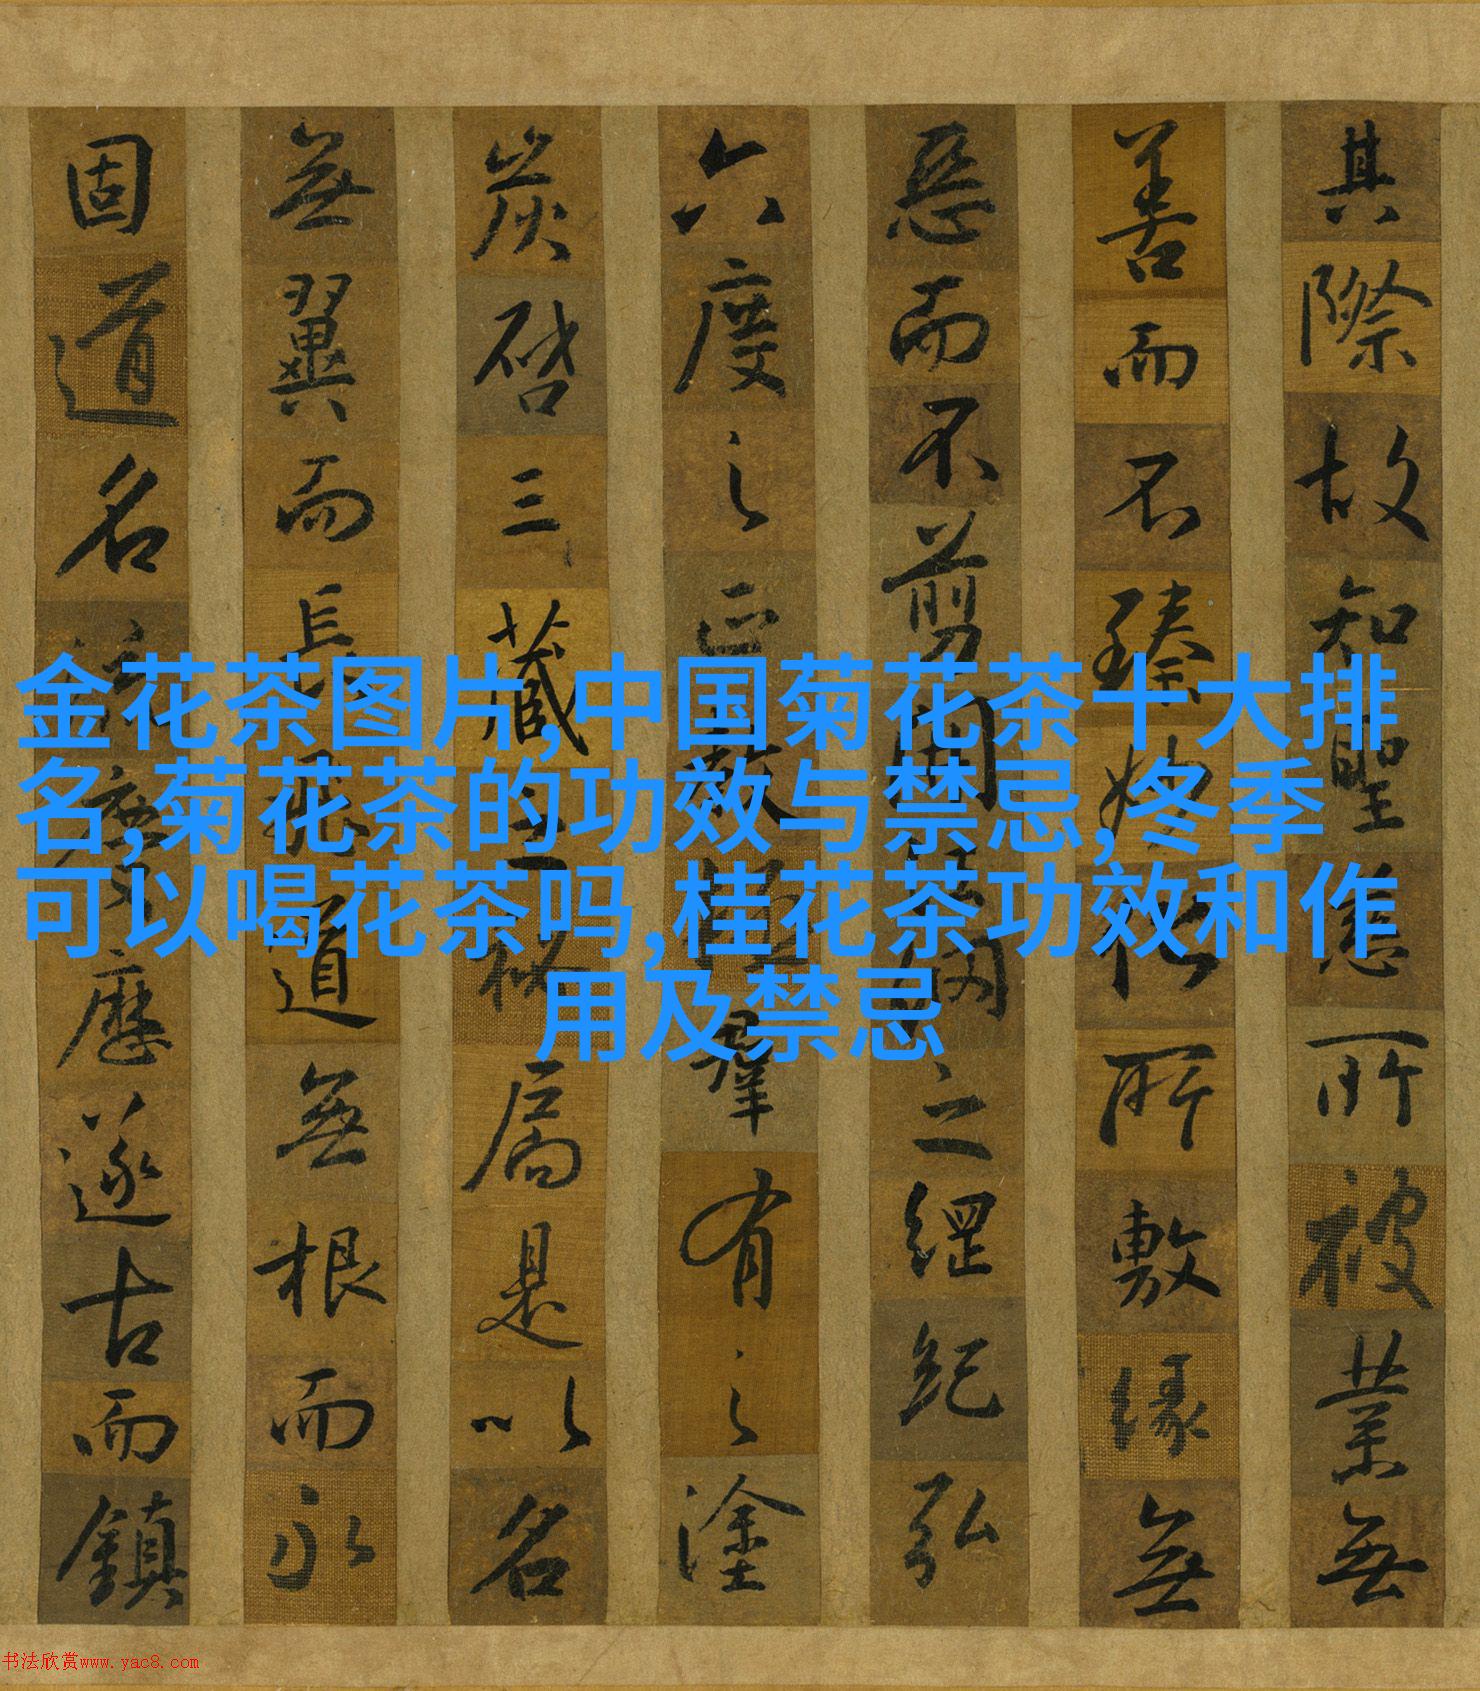 金花茶图片,中国菊花茶十大排
名,菊花茶的功效与禁忌,冬季
可以喝花茶吗,桂花茶功效和作
用及禁忌
其際故知聖慈所被業無
善而不臻妙化所敷緣無
惡而不剪開法網之綱紀弘
六度之正教拯羣有之塗
炭啓三藏之秘扃是以名
無翼而長飛道無根而永
固道名流慶歷遂古而鎮
书法欣赏www.yac8.com